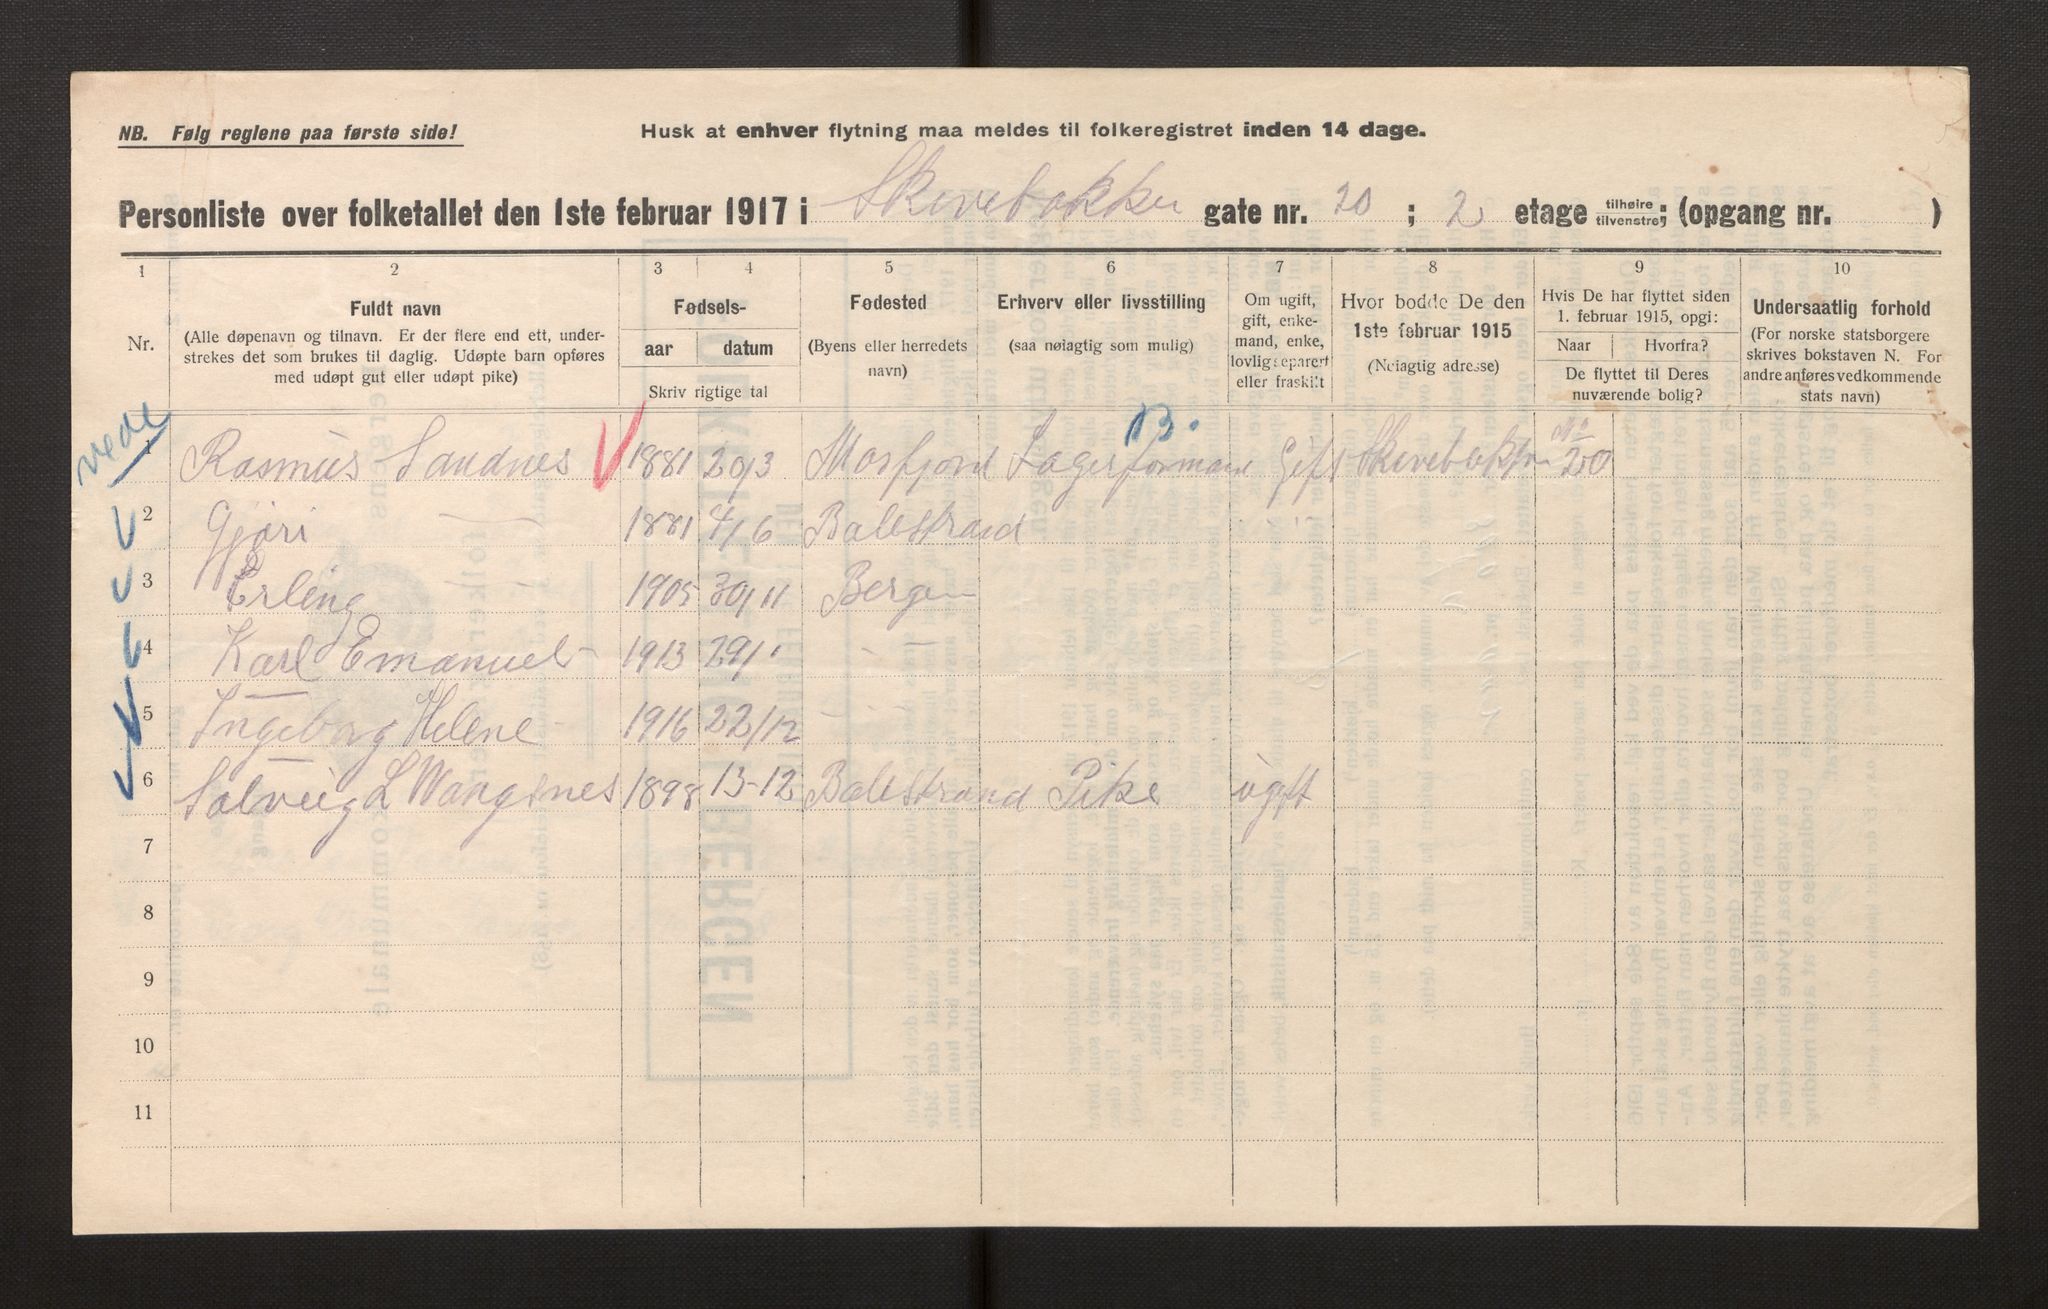 NB. Følg reglene paa første side!
Husk at enhver flytning maa meldes til folkeregistret inden 14 dage.
Personliste over folketallet den 1ste februar 1917 i Skivebakken gate nr. 20 ; 2 etage tilhøire tilvenstre; (opgang nr. )
1 2 3 4 5 6 7 8 9 10
Nr.
Fuldt navn
(Alle døpenavn og tilnavn. Er der flere end ett, under-
strekes det som brukes til daglig. Udøpte barn opføres
med udøpt gut eller udøpt pike)
Fødsels-
aar datum
Skriv rigtige tal
Fødested
(Byens eller herredets
navn)
Erhverv eller livsstilling
(saa nøiagtig som mulig)
Om ugift,
gift, enke-
mand, enke,
lovlig separert
eller fraskilt
Hvor bodde De den
1ste februar 1915
(Nøiagtig adresse)
Hvis De har flyttet siden
1. februar 1915, opgi:
Naar Hvorfra?
De flyttet til Deres
nuværende bolig?
Undersaatlig forhold
(For norske statsborgere
skrives bokstaven N. For
andre anføres vedkommende
stats navn)
B.
1 Rasmus Sandnes 1881 20/3 Masfjord Lagerformand Gift Skivebakken No 20
2 Gjøri — 1881 4/6 Balestrand
3 Erling 1905 30/11 Bergen
4 Karl Emanuel 1913 29/1 - —
5 Ingeborg Helene - 1916 22/12 - - -
6 Solveig L Wangsnes 1898 13-12 Balestrand Pike ugift
7
8
9
10
11